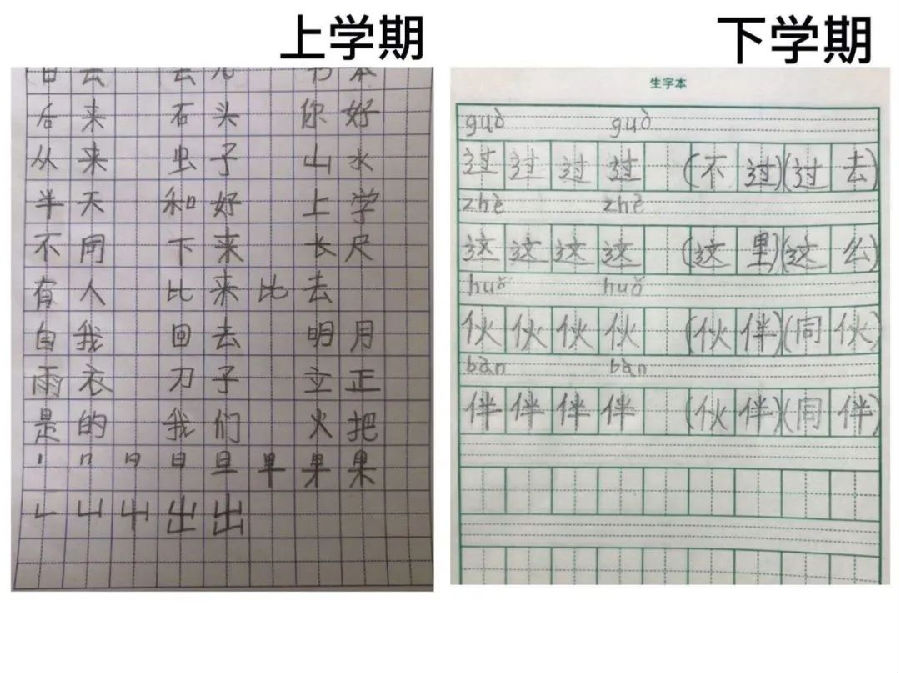 上学期
去 去 儿 书 本
后 来 石 头 你 好
从 来 虫 子 山 水
半 天 和 好 上 学
不 同 下 来 长 尺
有 人 比 来 比 去
自 我 回 去 明 月
雨 衣 刀 子 立 正
是 的 我 们 火 把
丨 冂 日 日 旦 甲 果 果
出 出
下学期
生字本
guò guò
过 过 过 过 (不 过)(过 去)
zhè zhè
这 这 这 这 (这 里)(这 么)
huǒ huǒ
伙 伙 伙 伙 (伙 伴)(同 伙)
bàn bàn
伴 伴 伴 伴 (伙 伴)(同 伴)